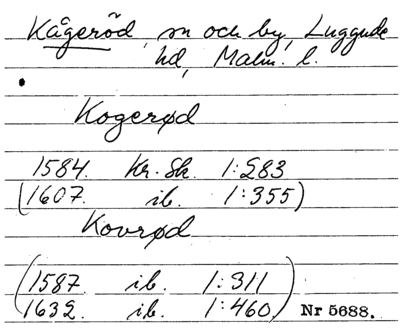 Kågeröd, sn och by, Luggude
hd, Malm. l.
Kogerød
1584. Kr. Sk. 1:283
(1607. ib. 1:355)
Kovrød
(1587. ib. 1:311
1632. ib. 1:460) Nr 5688.